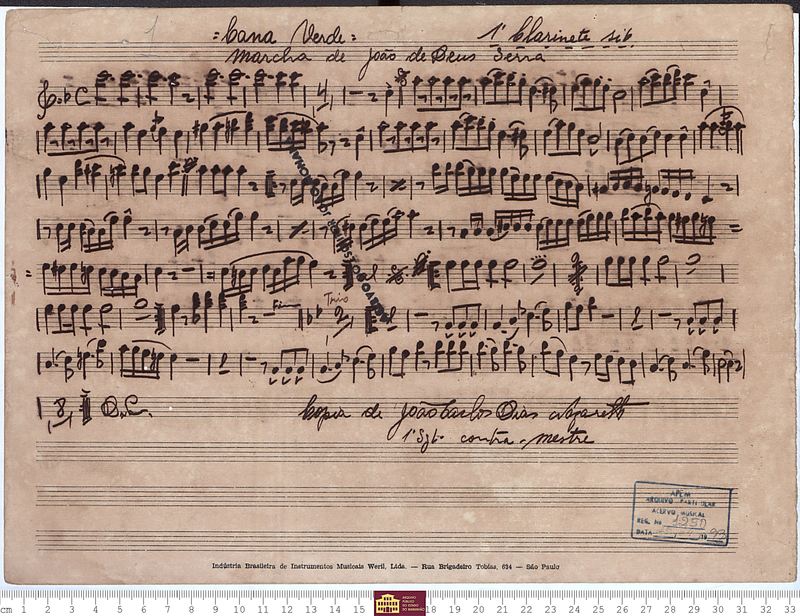 1
= Cana Verde = 1º Clarinete sib
Marcha de João de Deus Serra
Fim Trio
8 D.C.
Copia de João Carlos Dias Nazareth
1º Sgtº contra-mestre
APEM
ARQUIVO PARTICULAR
ACERVO MUSICAL
REG. No 1250
DATA 19 93
Indústria Brasileira de Instrumentos Musicais Weril, Ltda. — Rua Brigadeiro Tobias, 634 — São Paulo
cm 1 2 3 4 5 6 7 8 9 10 11 12 13 14 15 18 19 20 21 22 23 24 25 26 27 28 29 30 31 32 33
ARQUIVO PÚBLICO DO ESTADO DO MARANHÃO